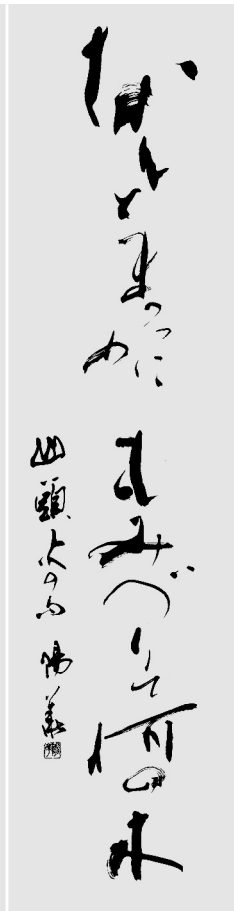 なんとまつかにもみづりて何の木
山頭火の句 陽義